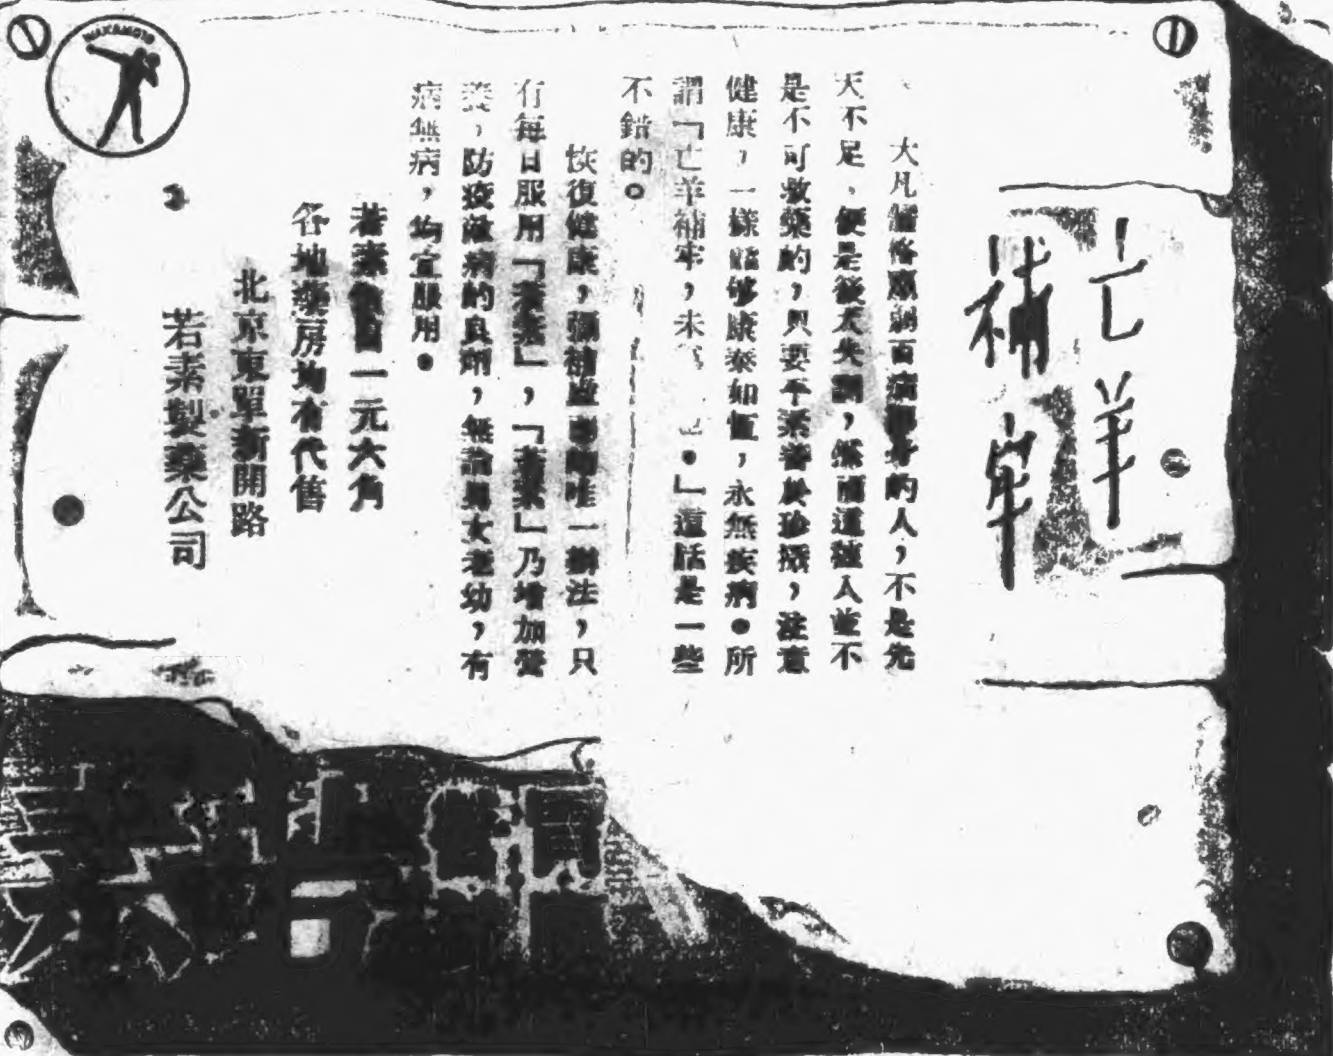 亡羊
補牢
大凡體格羸弱百病纏身的人，不是先
天不足，便是後天失調，然而這種人並不
是不可救藥的，只要平素善於珍攝，注意
健康，一樣能够康泰如恆，永無疾病。所
謂「亡羊補牢，未 也。」這話是一些
不錯的。
恢復健康，彌補虛 唯一辦法，只
有每日服用「若素」，「若素」乃增加營
養，防疫敵病的良劑，無論男女老幼，有
病無病，均宜服用。
若素 一元六角
各地藥房均有代售
北京東單新開路
若素製藥公司
WAKAMOTO
素若